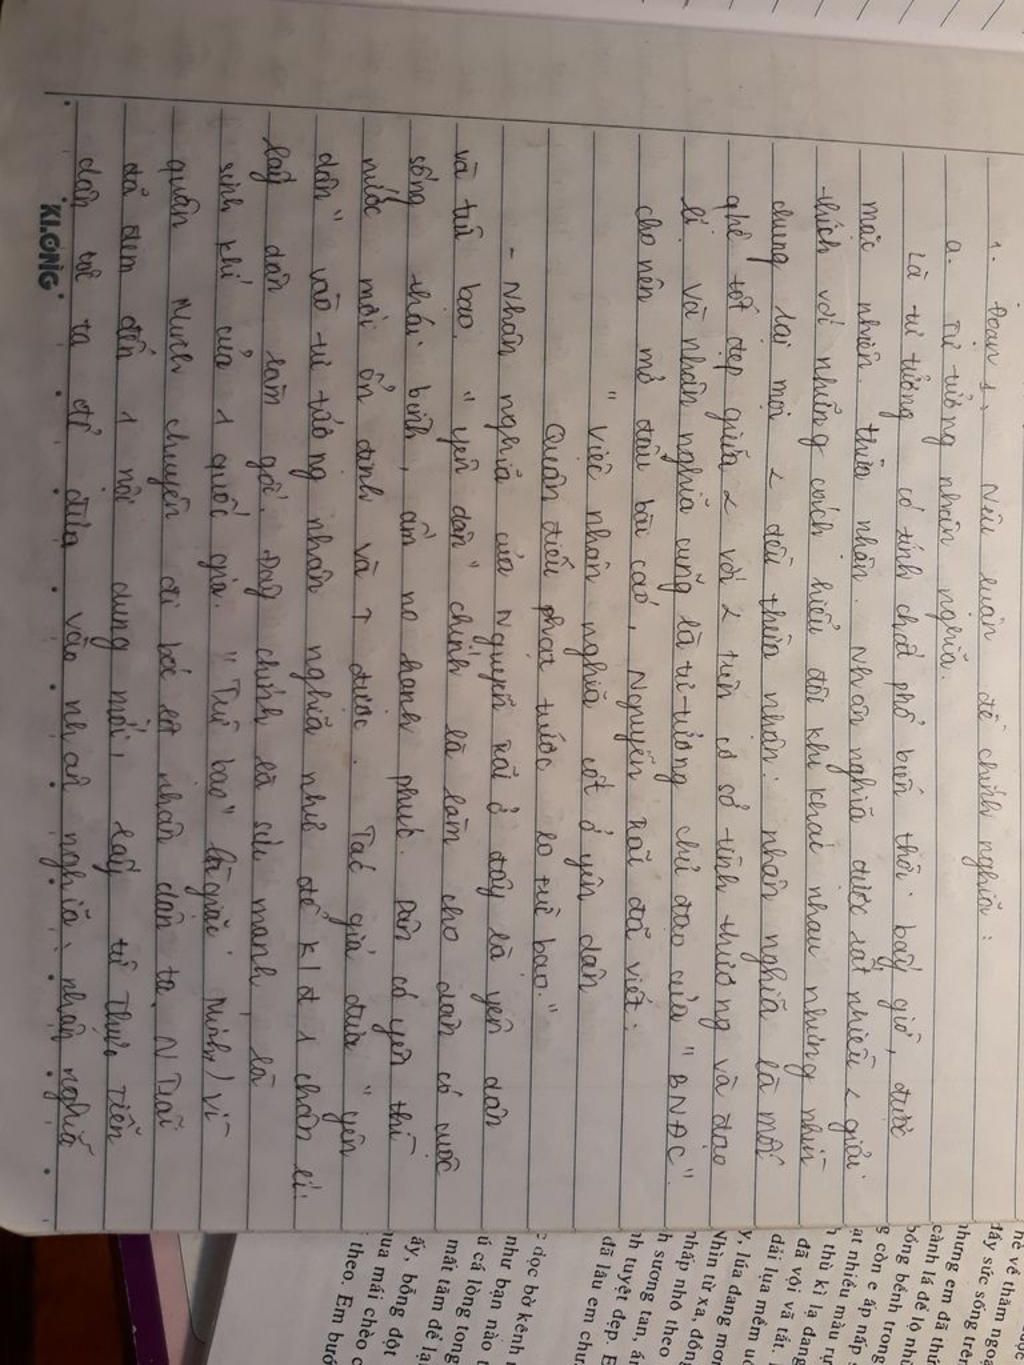 1. Đoạn 1: Nêu luận đề chính nghĩa:
a. Tư tưởng nhân nghĩa.
Là tư tưởng có tính chất phổ biến thời bấy giờ, được
mặc nhiên thừa nhận. Nhân nghĩa được rất nhiều < giải
thích với những cách hiểu đôi khi khác nhau nhưng nhìn
chung lại mọi < đều thừa nhận: nhân nghĩa là mối
qhệ tốt đẹp giữa < với < trên cơ sở tình thương và đạo
lí. Và nhân nghĩa cũng là tư tưởng chủ đạo của "BNĐC".
cho nên mở đầu bài cáo, Nguyễn Trãi đã viết:
"Việc nhân nghĩa cốt ở yên dân
Quân điếu phạt trước lo trừ bạo."
- Nhân nghĩa của Nguyễn Trãi ở đây là yên dân
và trừ bạo. "yên dân" chính là làm cho dân có cuộc
sống thái bình, ấm no hạnh phúc. Dân có yên thì
nước mới ổn định và ↑ được. Tác giả đưa "yên
dân" vào tư tưởng nhân nghĩa như để k/đ 1 chân lí:
lấy dân làm gốc. Đây chính là sức mạnh, là
sinh khí của 1 quốc gia. "Trừ bạo" là giặc Minh) vì
quân Minh chuyên đi bóc lột nhân dân ta. N Trãi
đã đem đến 1 nội dung mới, lấy từ Thực Tiễn
dân tộc ta để đưa vào nhân nghĩa, nhân nghĩa
KLONG
dọc bờ kênh
như bạn nào
ú cá lòng tong
mất tăm để lại
ấy, bỗng đột
qua mái chèo
theo. Em buổ
đã lâu em chư
nh tuyệt đẹp. E
h sương tan, án
nhấp nhô theo
Nhìn từ xa, đồng
y, lúa đang mon
dải lụa mềm
đã vội vã tắt.
thù kì lạ đang
ạt nhiều màu rự
g còn e ấp nấp
bóng bệnh trong
cành lá để lộ nh
nhưng em đã thứ
đầy sức sống trê
hè về thăm ngo